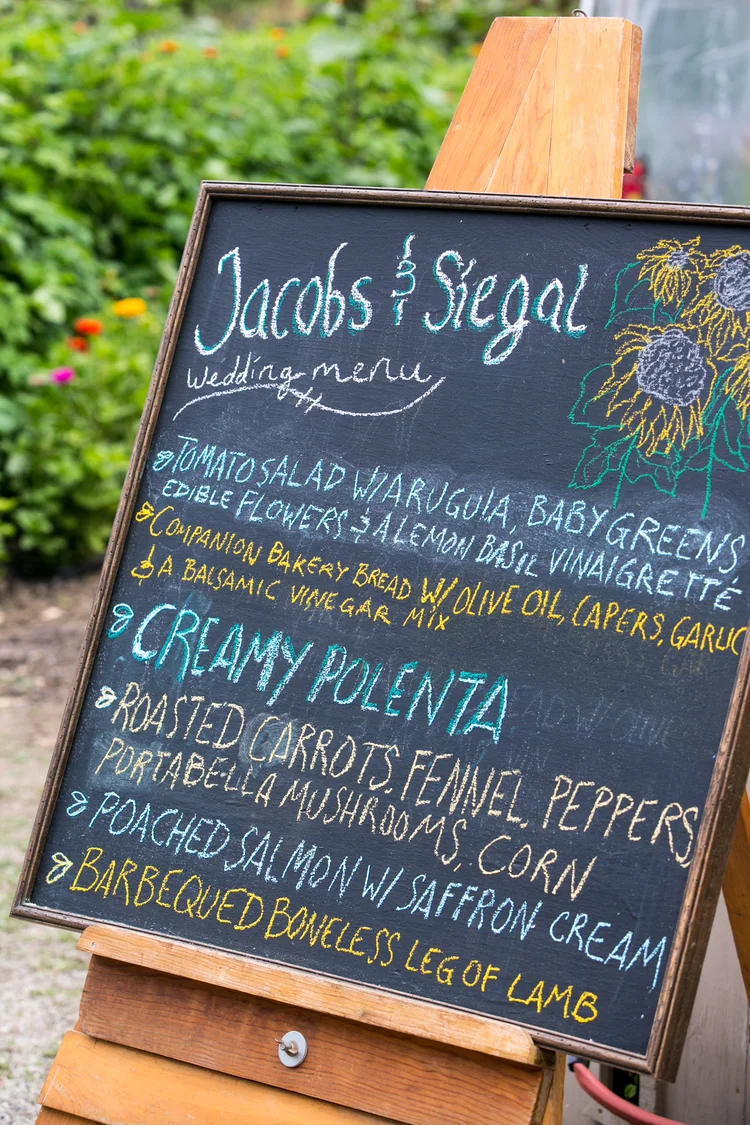 Jacobs & Siegal
Wedding menu
TOMATO SALAD W/ARUGULA, BABY GREENS
EDIBLE FLOWERS & A LEMON BASIL VINAIGRETTE
COMPANION BAKERY BREAD W/ OLIVE OIL, CAPERS, GARLIC
& A BALSAMIC VINEGAR MIX
CREAMY POLENTA
ROASTED CARROTS, FENNEL, PEPPERS
PORTABELLA MUSHROOMS, CORN
POACHED SALMON W/ SAFFRON CREAM
BARBEQUED BONELESS LEG OF LAMB